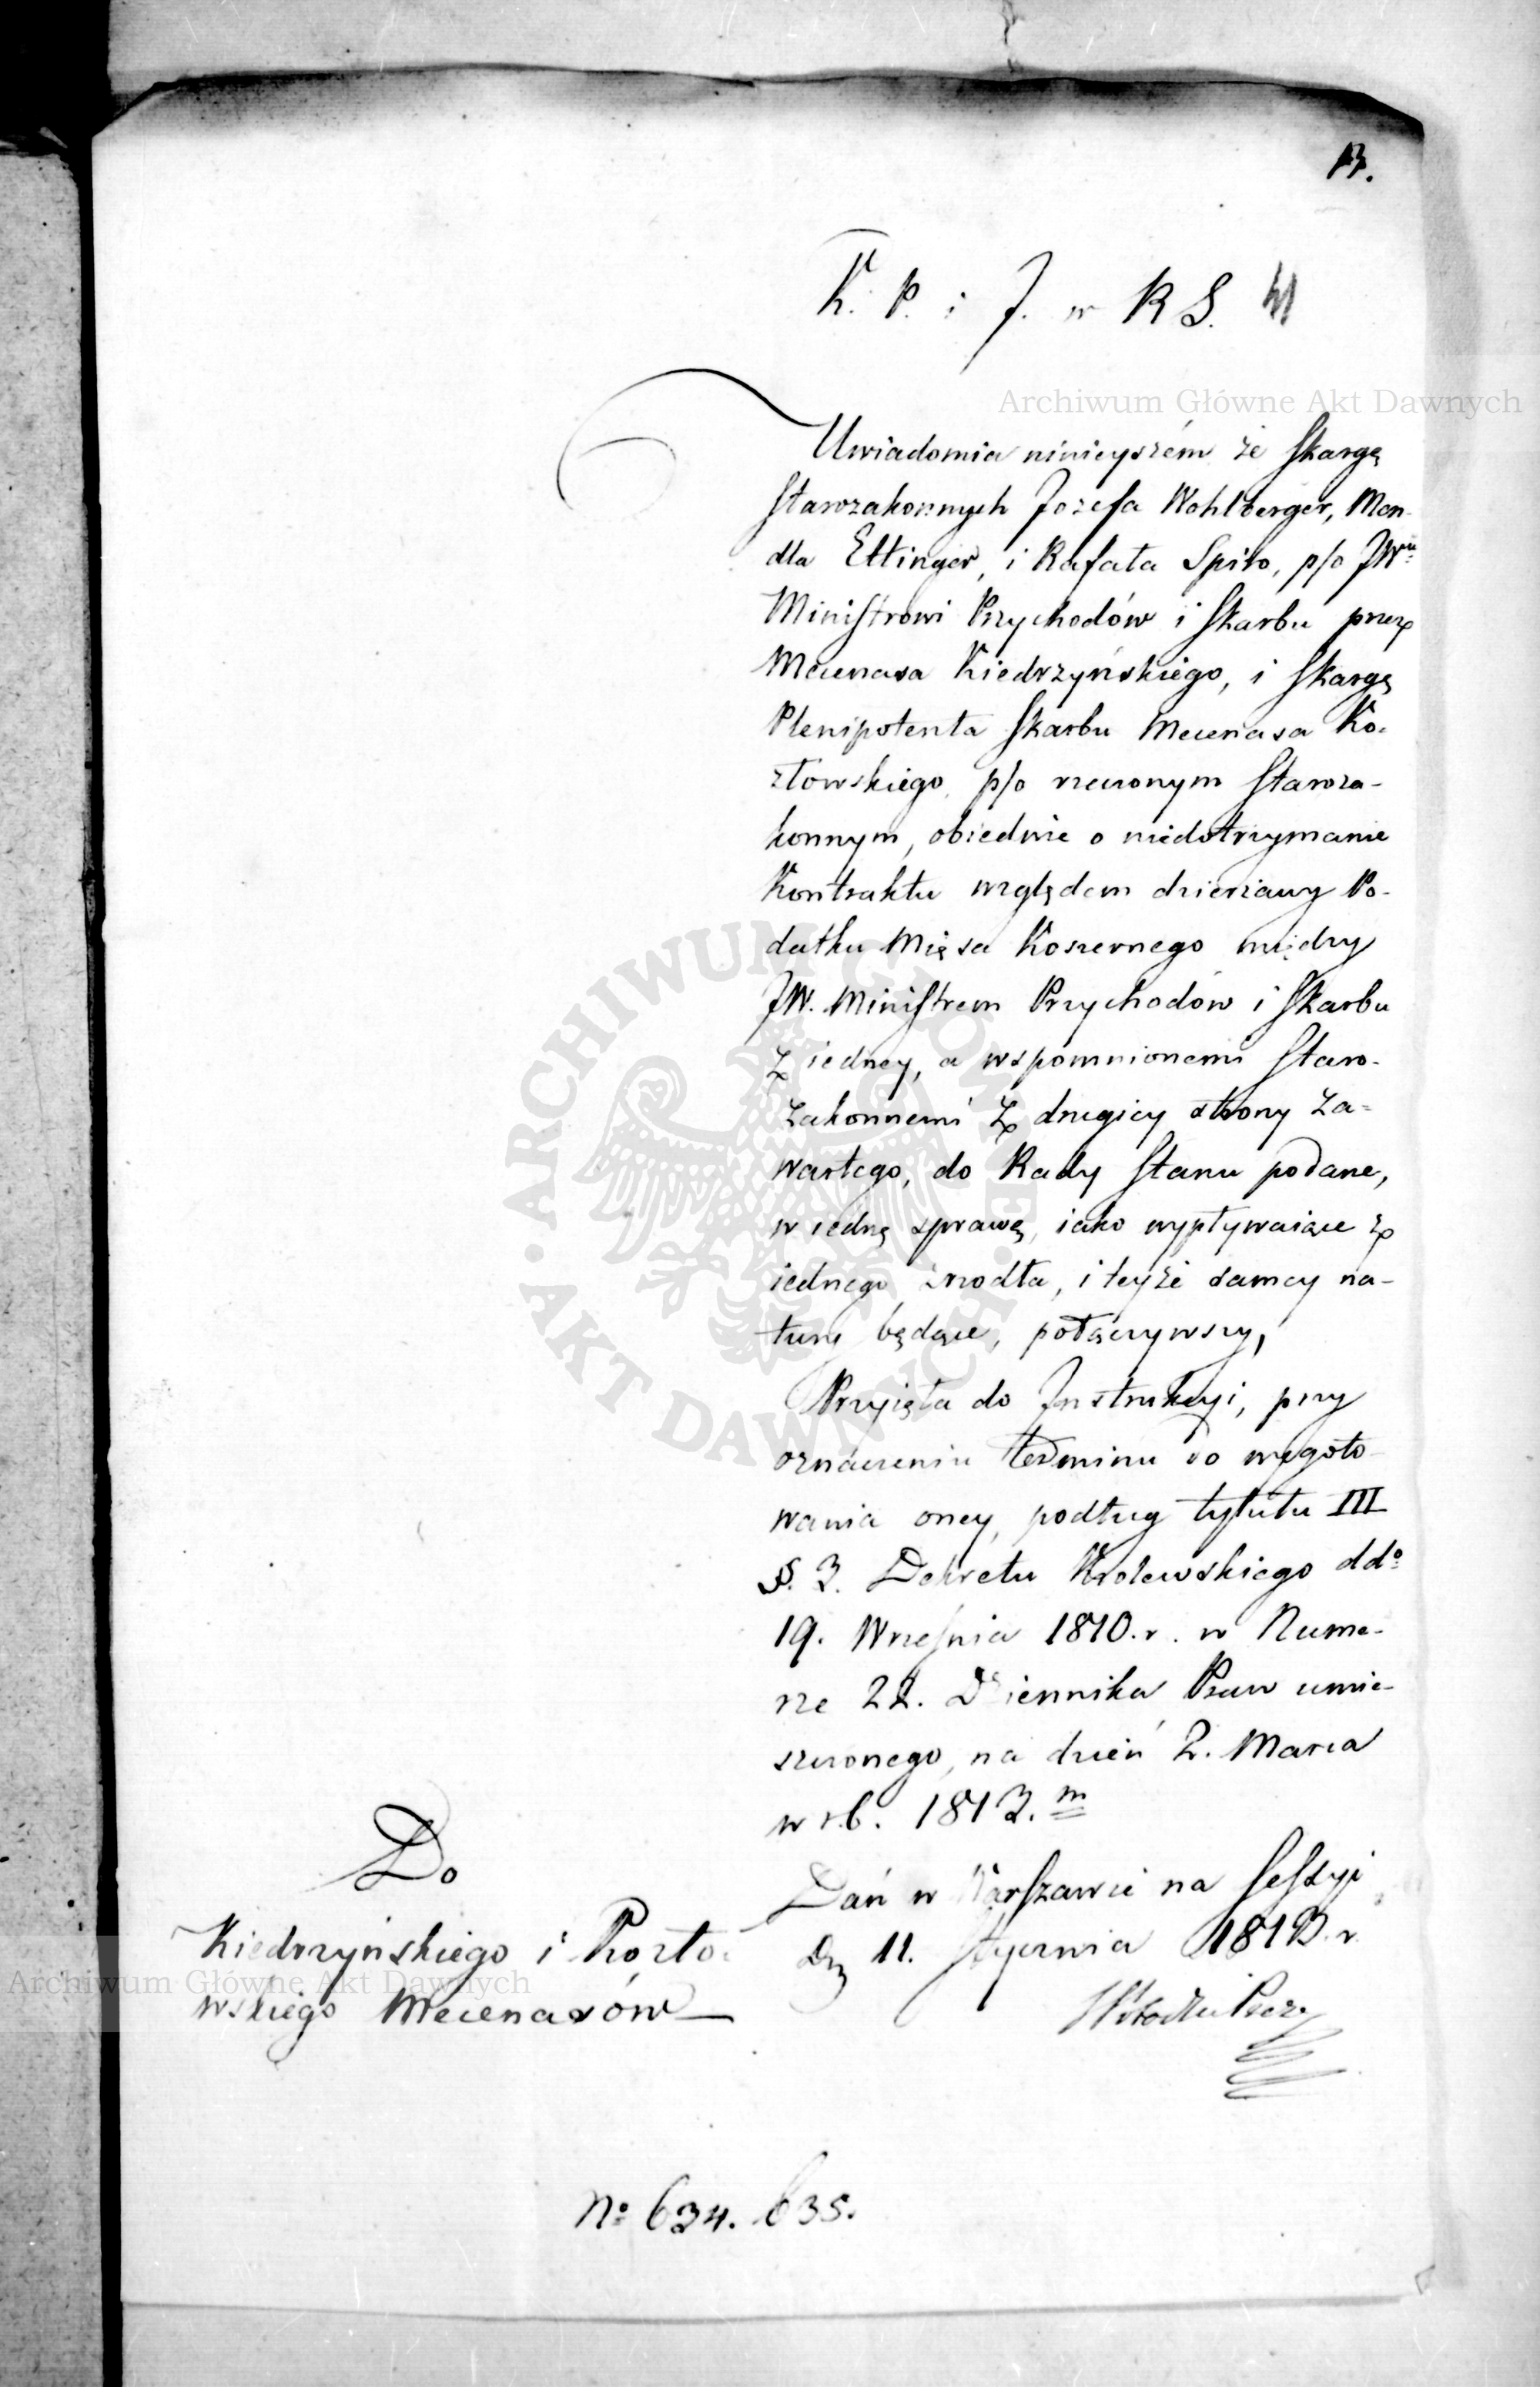 13.
K. P. i J. w R S.
Archiwum Główne Akt Dawnych
Uwiadomia ninieyszém że skargę
starozakonnych Jozefa Wohlberger, Men-
dla Ettinger, i Rafała Spiro, p/o JWu
Ministrowi Przychodów i Skarbu przez
Mecenasa Kiedrzyńskiego, i skargę
Plenipotenta Skarbu Mecenasa Ko-
złowskiego, p/o rzeczonym staroza-
konnym, obiedwie o niedotrzymanie
Kontraktu względem dzierżawy Po-
datku Mięsa Koszernego między
JW. Ministrem Przychodów i Skarbu
z iedney, a wspomnionemi Staro-
zakonnemi z drugiey strony za-
wartego, do Rady Stanu podane,
w iednę sprawę, iako wypływaiące z
iednego źrzodła, i teyże samey na-
tury będące, połączywszy,
Przyięła do Instrukcyi, przy
oznaczeniu terminu do wygoto-
wania oney, podług tytułu III
§. 3. Dekretu Krolewskiego ddo
19. Września 1810. r. w Nume-
rze 22. Dziennika Praw umie-
szczonego, na dzień 2. Marca
w r.b. 1813. m
Dań w Warszawie na Sessyi
Dn 11. Stycznia 1813. r.
Do
Kiedrzyńskiego i Kozło-
wskiego Mecenasów
Archiwum Główne Akt Dawnych
No 634. 635.
ARCHIWUM GŁÓWNE
AKT DAWNYCH